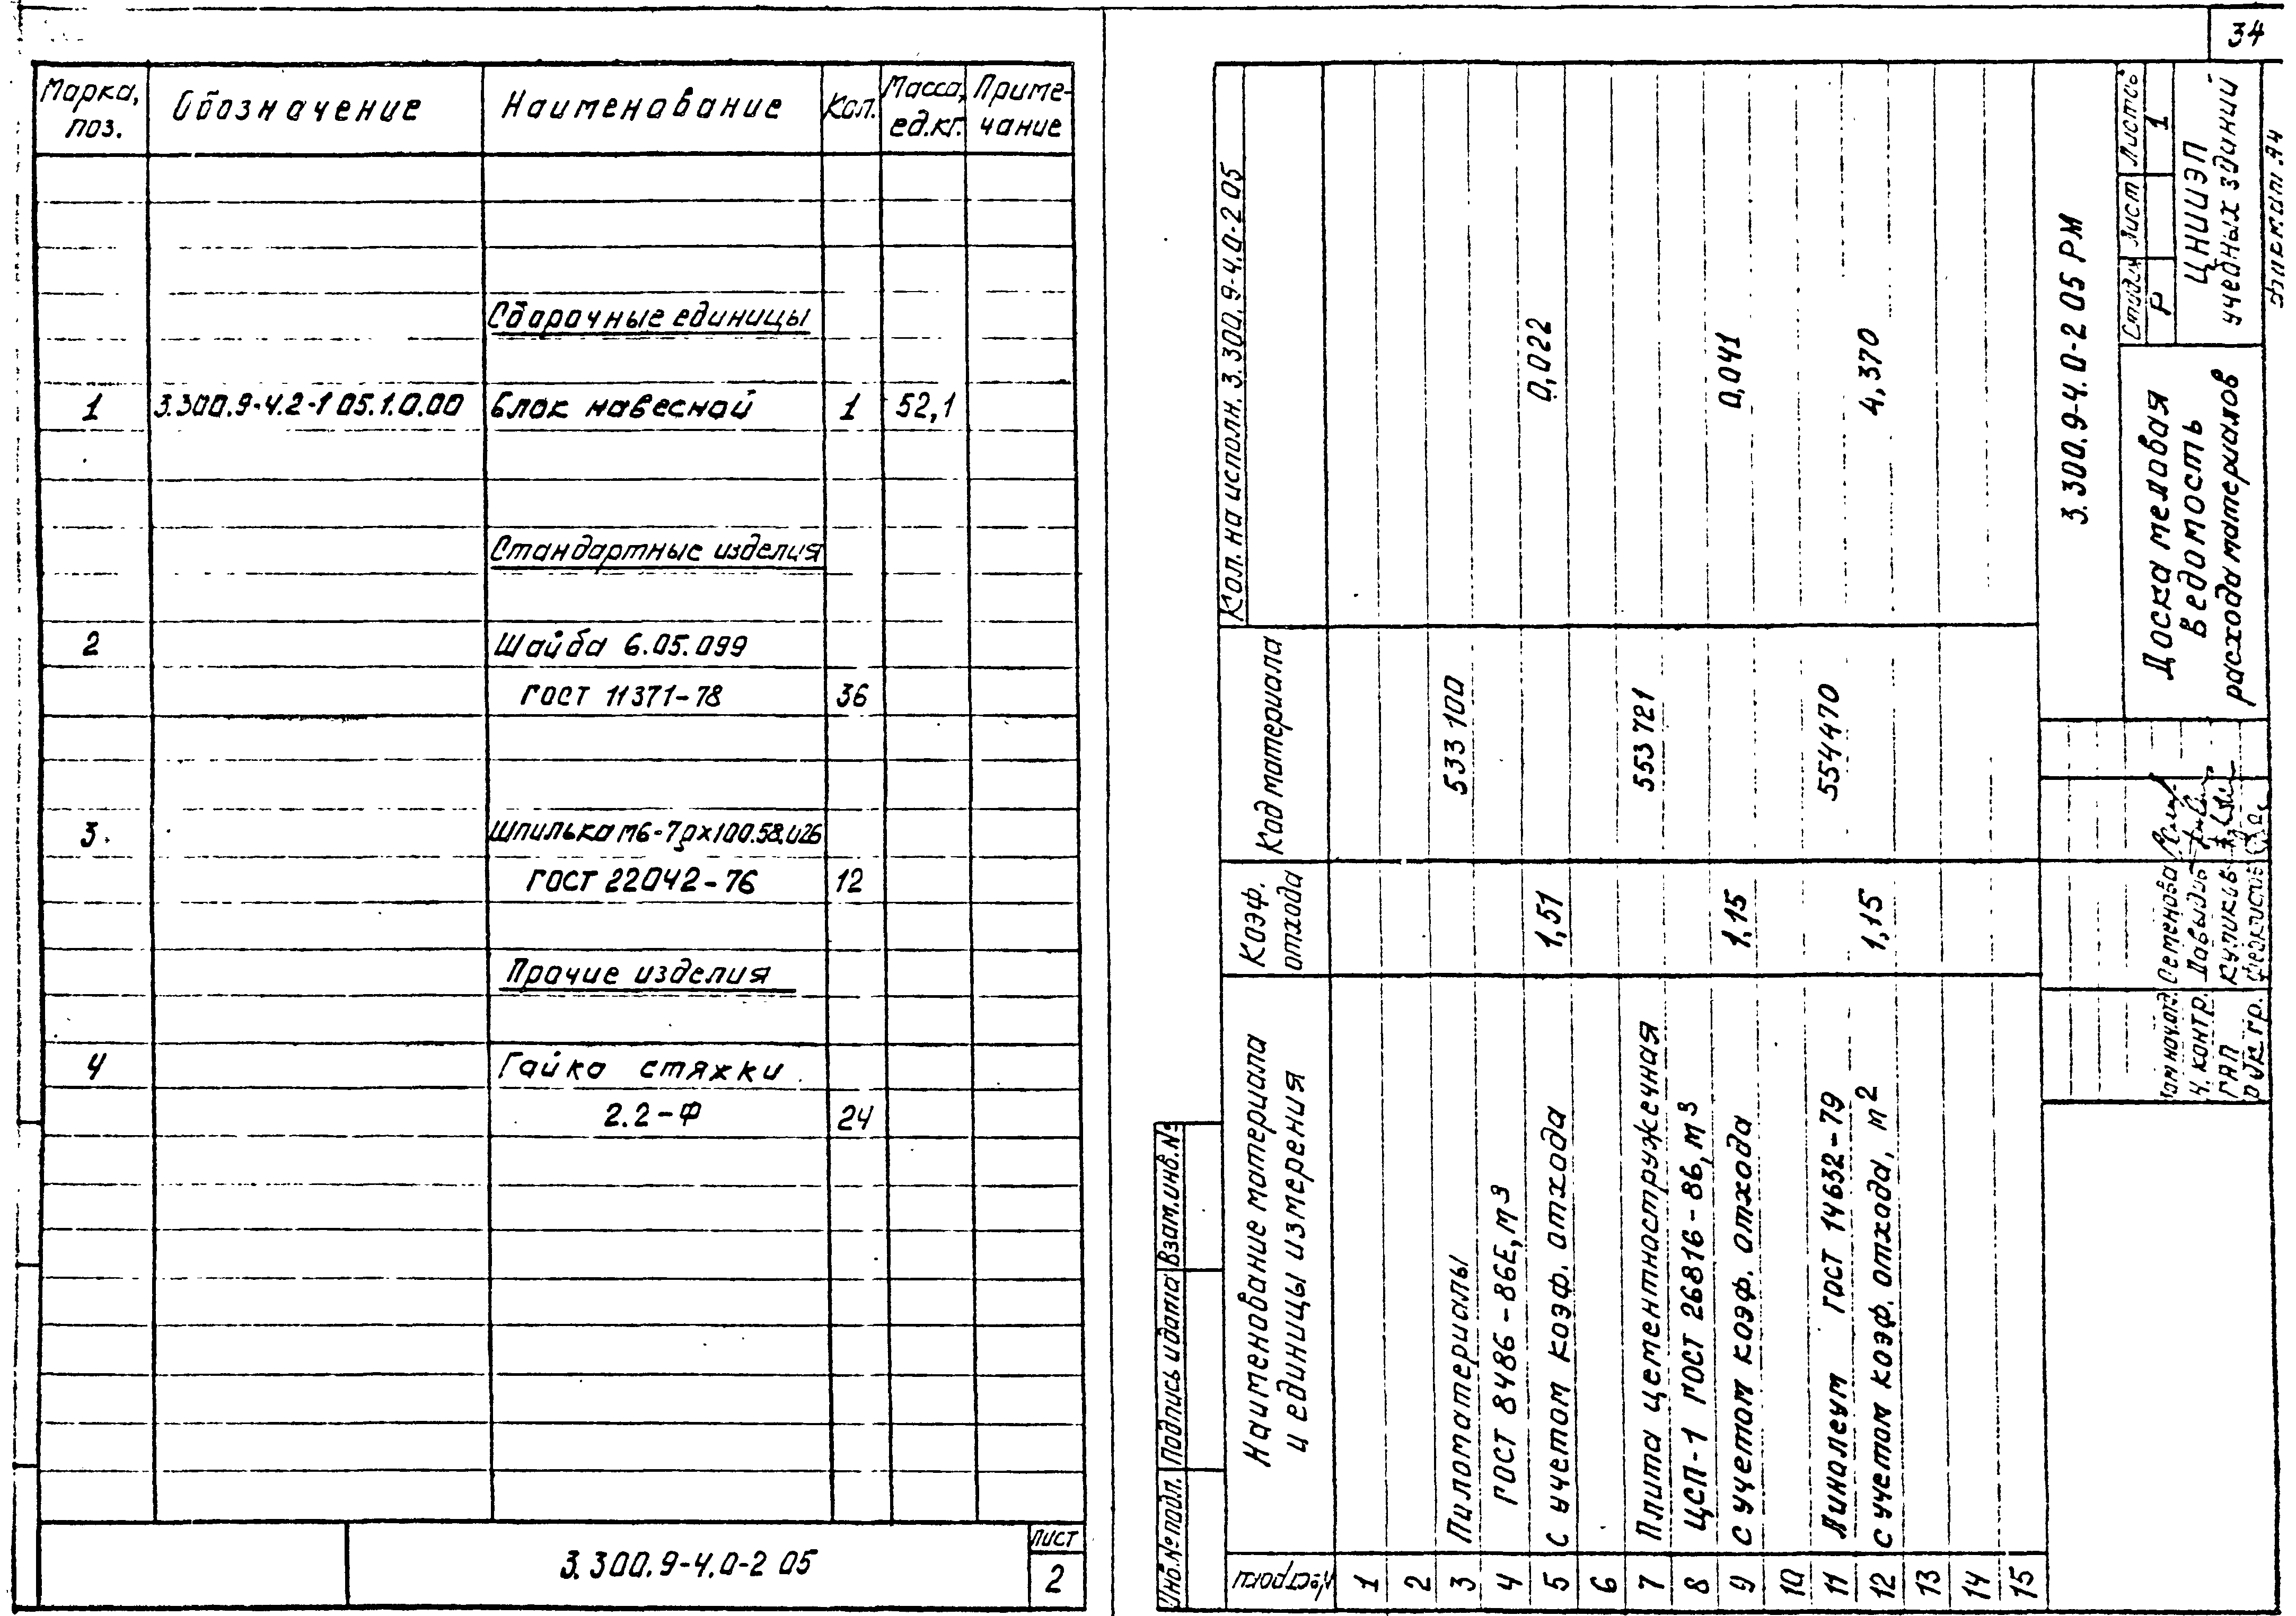 34
Марка, поз. Обозначение Наименование Кол. Масса, ед.кг. Приме-чание
Сборочные единицы
1 3.300.9-4.2-1 05.1.0.00 Блок навесной 1 52,1
Стандартные изделия
2 Шайба 6.05.099
ГОСТ 11371-78 36
3. Шпилька М6-7рх100.58.026
ГОСТ 22042-76 12
Прочие изделия
4 Гайка стяжки
2.2-Ф 24
3.300.9-4.0-2 05
Лист
2
№ строки Наименование материала и единицы измерения Коэф. отхода Код материала Кол. на исполн. 3.300.9-4.0-2 05
1
2
3 Пиломатериалы 533100
4 ГОСТ 8486-86Е, м3
5 С учетом коэф. отхода 1,51 0,022
6
7 Плита цементностружечная 553721
8 ЦСП-1 ГОСТ 26816-86, м3
9 С учетом коэф. отхода 1,15 0,041
10
11 Линолеум ГОСТ 14632-79 554470
12 С учетом коэф. отхода, м2 1,15 4,370
13
14
15
Инв.№ подл. Подпись и дата Взам.инв.№
3.300.9-4.0-2 05 РМ
Зам.нач.отд. Семенова
Н. контр. Давыдов
ГАП Куликов
Рук.гр. Феоктистов
Доска меловая
Ведомость
расхода материалов
Стадия Лист Листов
Р 1
ЦНИИЭП
учебных зданий
Формат А4